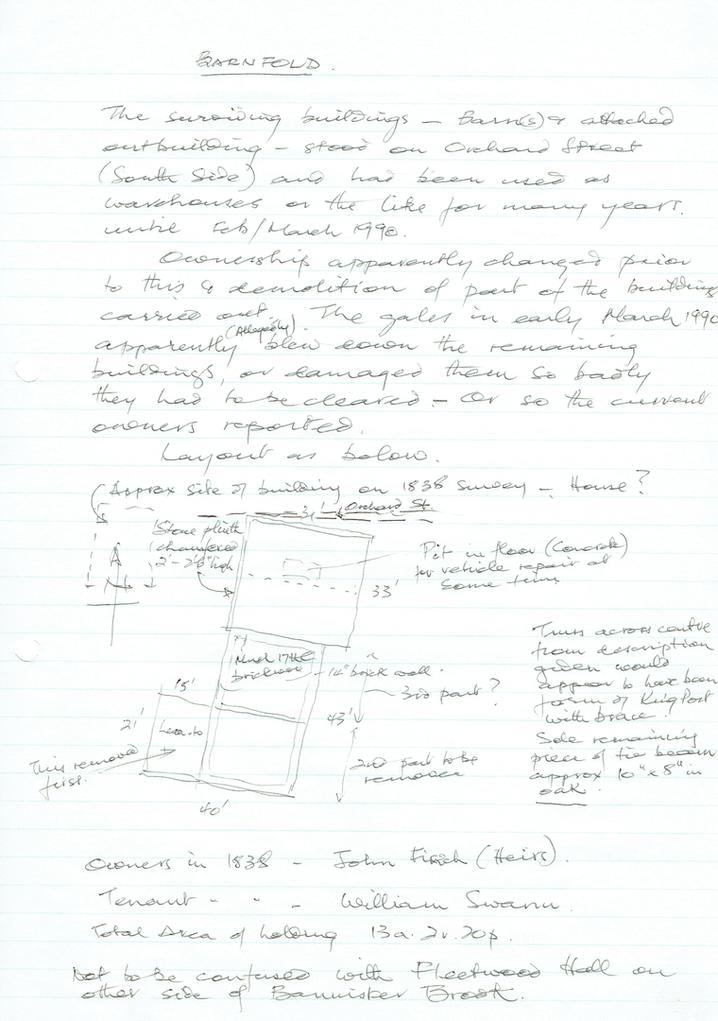 BARNFOLD.
The surviving buildings – Barn(s) & attached
outbuilding – stood on Orchard Street
(South Side) and had been used as
warehouses or the like for many years.
until Feb/March 1990.
Ownership apparently changed prior
to this & demolition of part of the building
carried out. The gales in early March 1990
(Allegedly)
apparently blew down the remaining
buildings, or damaged them so badly
they had to be cleared – Or so the current
owners reported.
Layout as below.
(Approx site of building on 1838 survey – House?
Orchard St.
Stone plinth
chamfered
2' – 2'6" high
Pit in floor (Concrete)
for vehicle repair at
some time
33'
Truss across centre
from description
given would
appear to have been
form of King Post
with brace.
Sole remaining
piece of tie beam
approx 10" x 8" in
oak.
Much 17thC
brickwork – 14" brick wall.
3rd part?
15'
21'
Lean-to
43'
This removed
first.
2nd part to be
removed
40'
Owners in 1838 – John Finch (Heirs).
Tenant " " – William Swann.
Total Area of holding 13a. 2r. 20p.
Not to be confused with Fleetwood Hall on
other side of Bannister Brook.